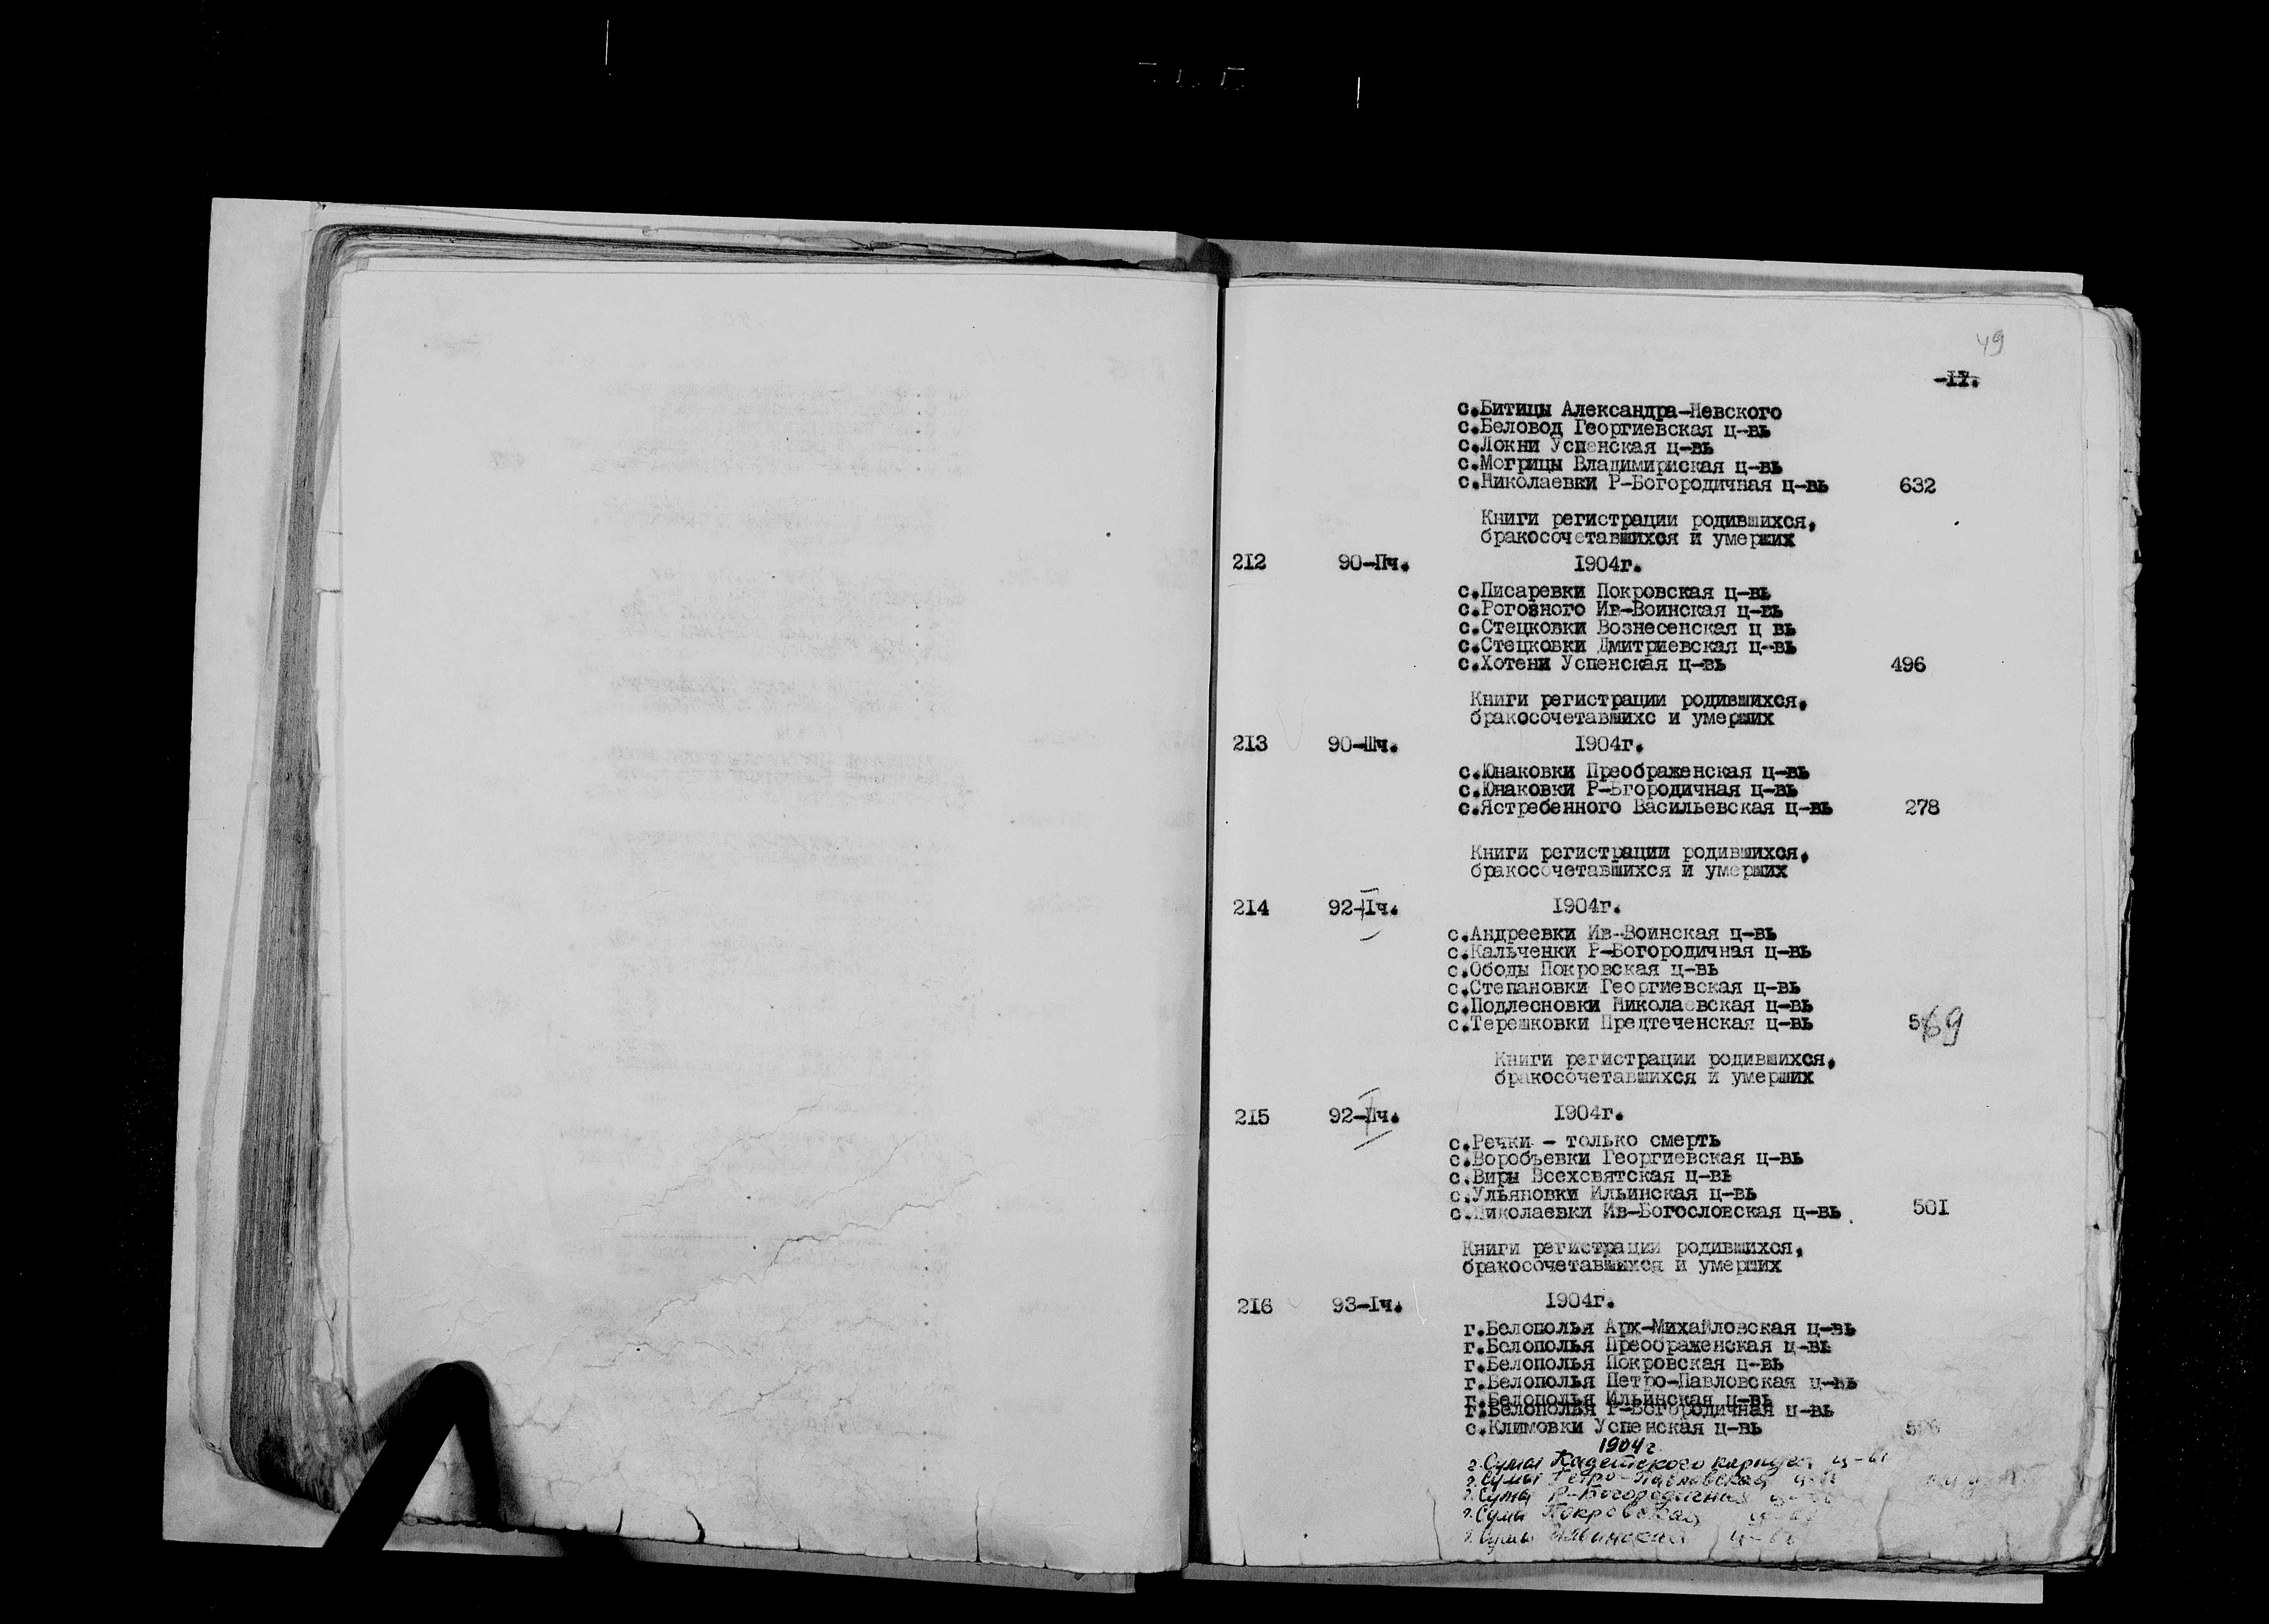 49
-17.
с.Битицы Александра-Невского
с.Беловод Георгиевская ц-вь
с.Локни Успенская ц-вь
с.Могрицы Владимирская ц-вь
с.Николаевки Р-Богородичная ц-вь 632
Книги регистрации родившихся,
бракосочетавшихся и умерших
212 90-IIч. 1904г.
с.Писаревки Покровская ц-вь
с.Рогозного Ив-Воинская ц-вь
с.Стецковки Вознесенская ц вь
с.Стецковки Дмитриевская ц-вь
с.Хотени Успенская ц-вь 496
Книги регистрации родившихся,
бракосочетавшихс и умерших
213 90-IIIч. 1904г.
с.Юнаковки Преображенская ц-вь
с.Юнаковки Р-Бгородичная ц-вь
с.Ястребенного Васильевская ц-вь 278
Книги регистрации родившихся,
бракосочетавшихся и умерших
214 92-Iч. 1904г.
с.Андреевки Ив-Воинская ц-вь
с.Кальченки Р-Богородичная ц-вь
с.Ободы Покровская ц-вь
с.Степановки Георгиевская ц-вь
с.Подлесновки Николаевская ц-вь
с.Терешковки Предтеченская ц-вь 569
Книги регистрации родившихся,
бракосочетавшихся и умерших
215 92-IIч. 1904г.
с.Речки - только смерть
с.Воробъевки Георгиевская ц-вь
с.Виры Всехсвятская ц-вь
с.Ульяновки Ильинская ц-вь
с.Николаевки Ив-Богословская ц-вь 501
Книги регистрации родившихся,
бракосочетавшихся и умерших
216 93-Iч. 1904г.
г.Белополья Арх-Михайловская ц-вь
г.Белополья Преображенская ц-вь
г.Белополья Покровская ц-вь
г.Белополья Петро-Павловская ц-вь
г.Белополья Ильинская ц-вь
г.Белополья Р-Богородичная ц-вь
с.Климовки Успенская ц-вь
1904г.
г.Сумы Кадетского корпуса ц-вь
г.Сумы Петро-Павловская ц-вь
г.Сумы Р-Богородичная
г.Сумы Покровская ц-вь
г.Сумы Ильинская ц-вь